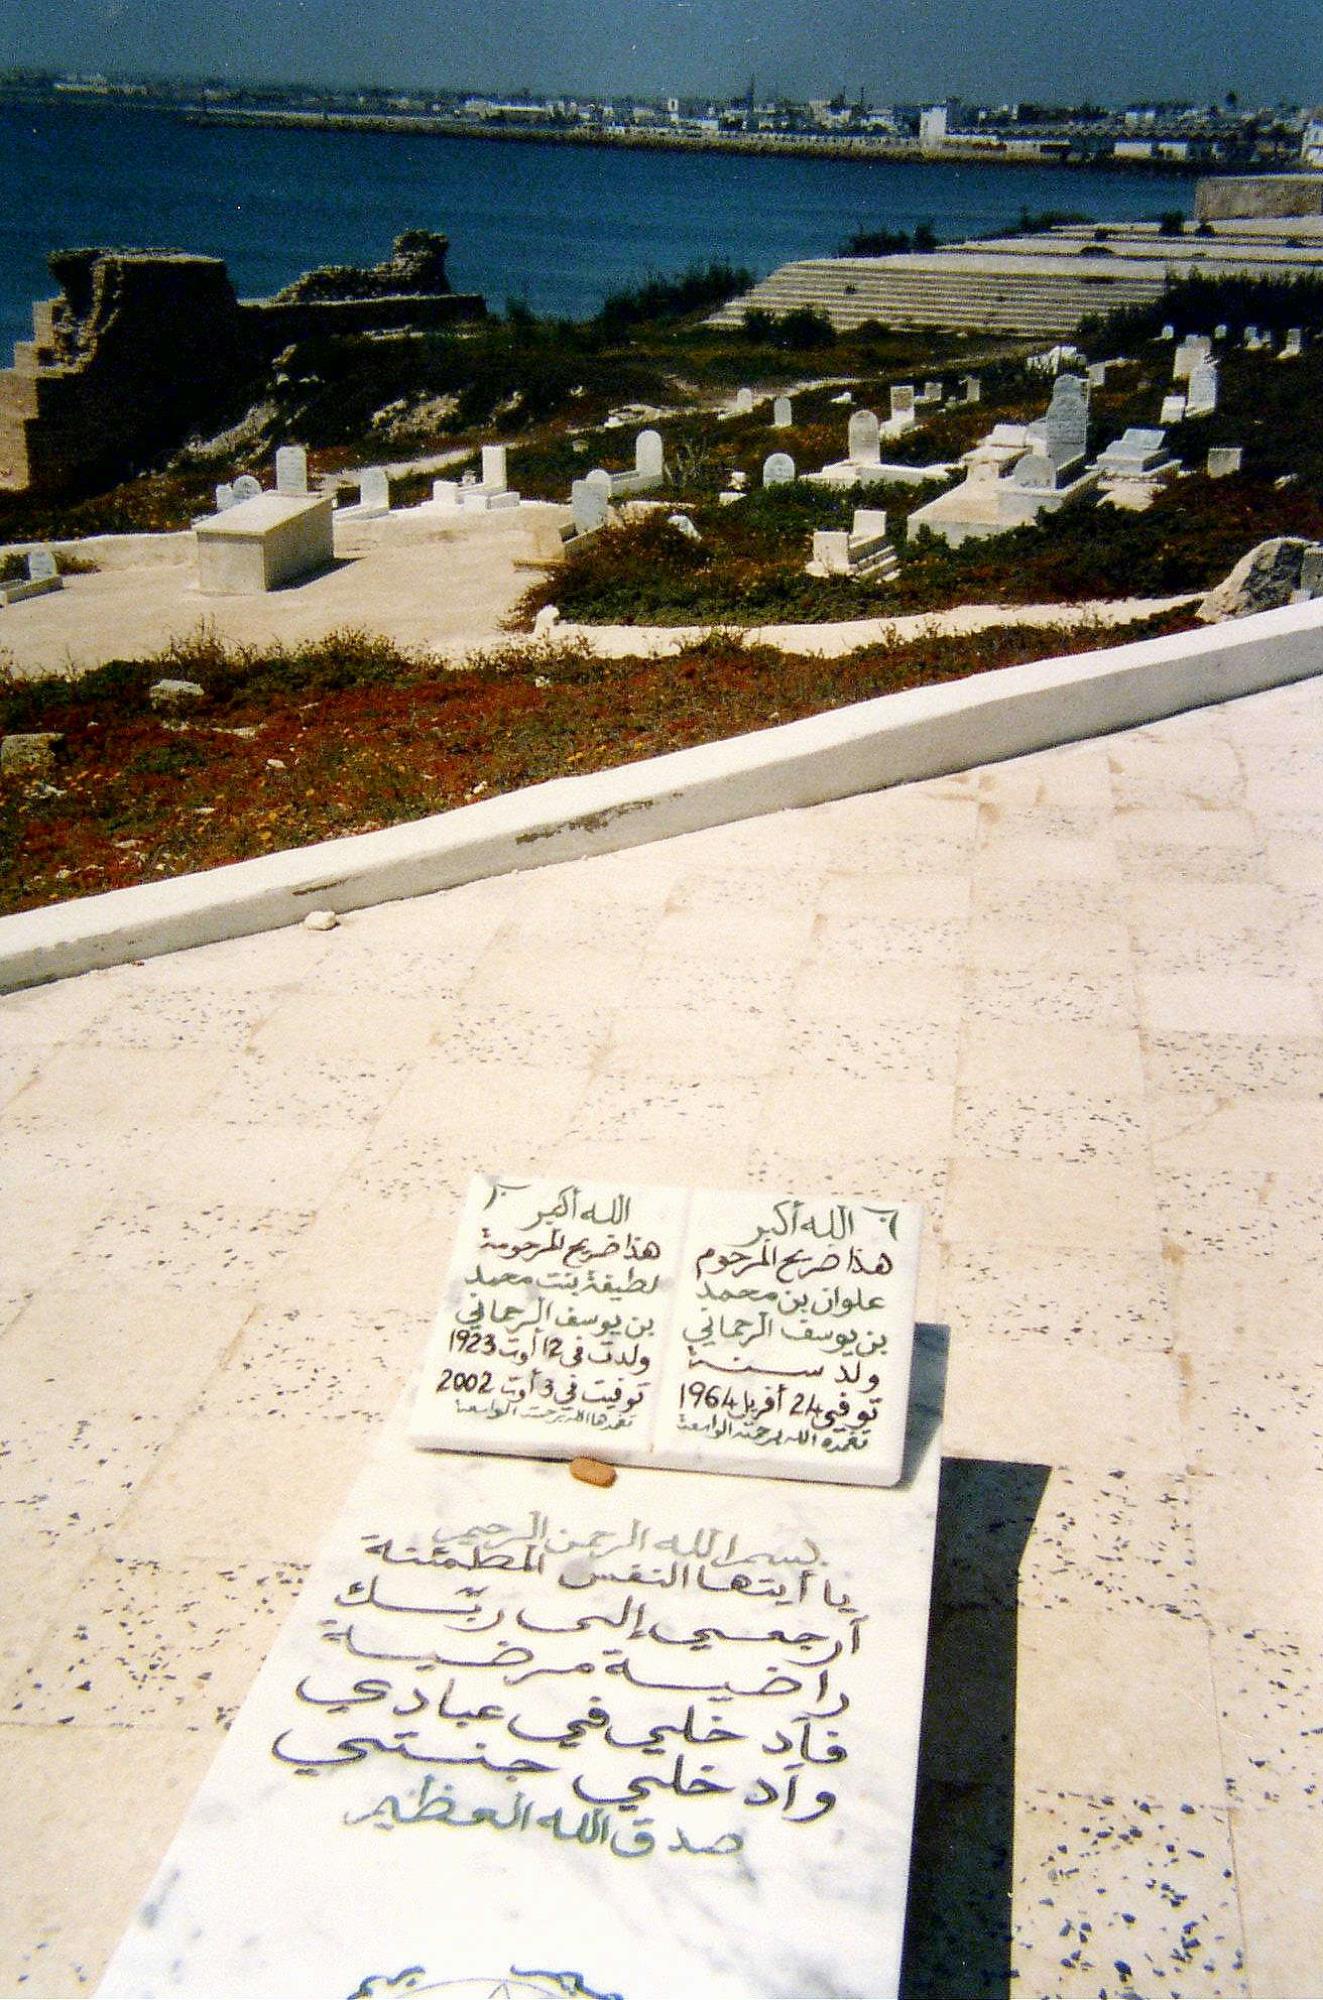 الله أكبر
هذا ضريح المرحوم
علوان بن محمد
بن يوسف الرحماني
ولد سنة
توفي 24 أفريل 1964
تغمده الله برحمته الواسعة
الله أكبر
هذا ضريح المرحومة
لطيفة بنت محمد
بن يوسف الرحماني
ولدت في 12 أوت 1923
توفيت في 3 أوت 2002
تغمدها الله برحمته الواسعة
بسم الله الرحمن الرحيم
يا أيتها النفس المطمئنة
أرجعي إلى ربّك
راضية مرضية
فأدخلي في عبادي
وأدخلي جنتي
صدق الله العظيم